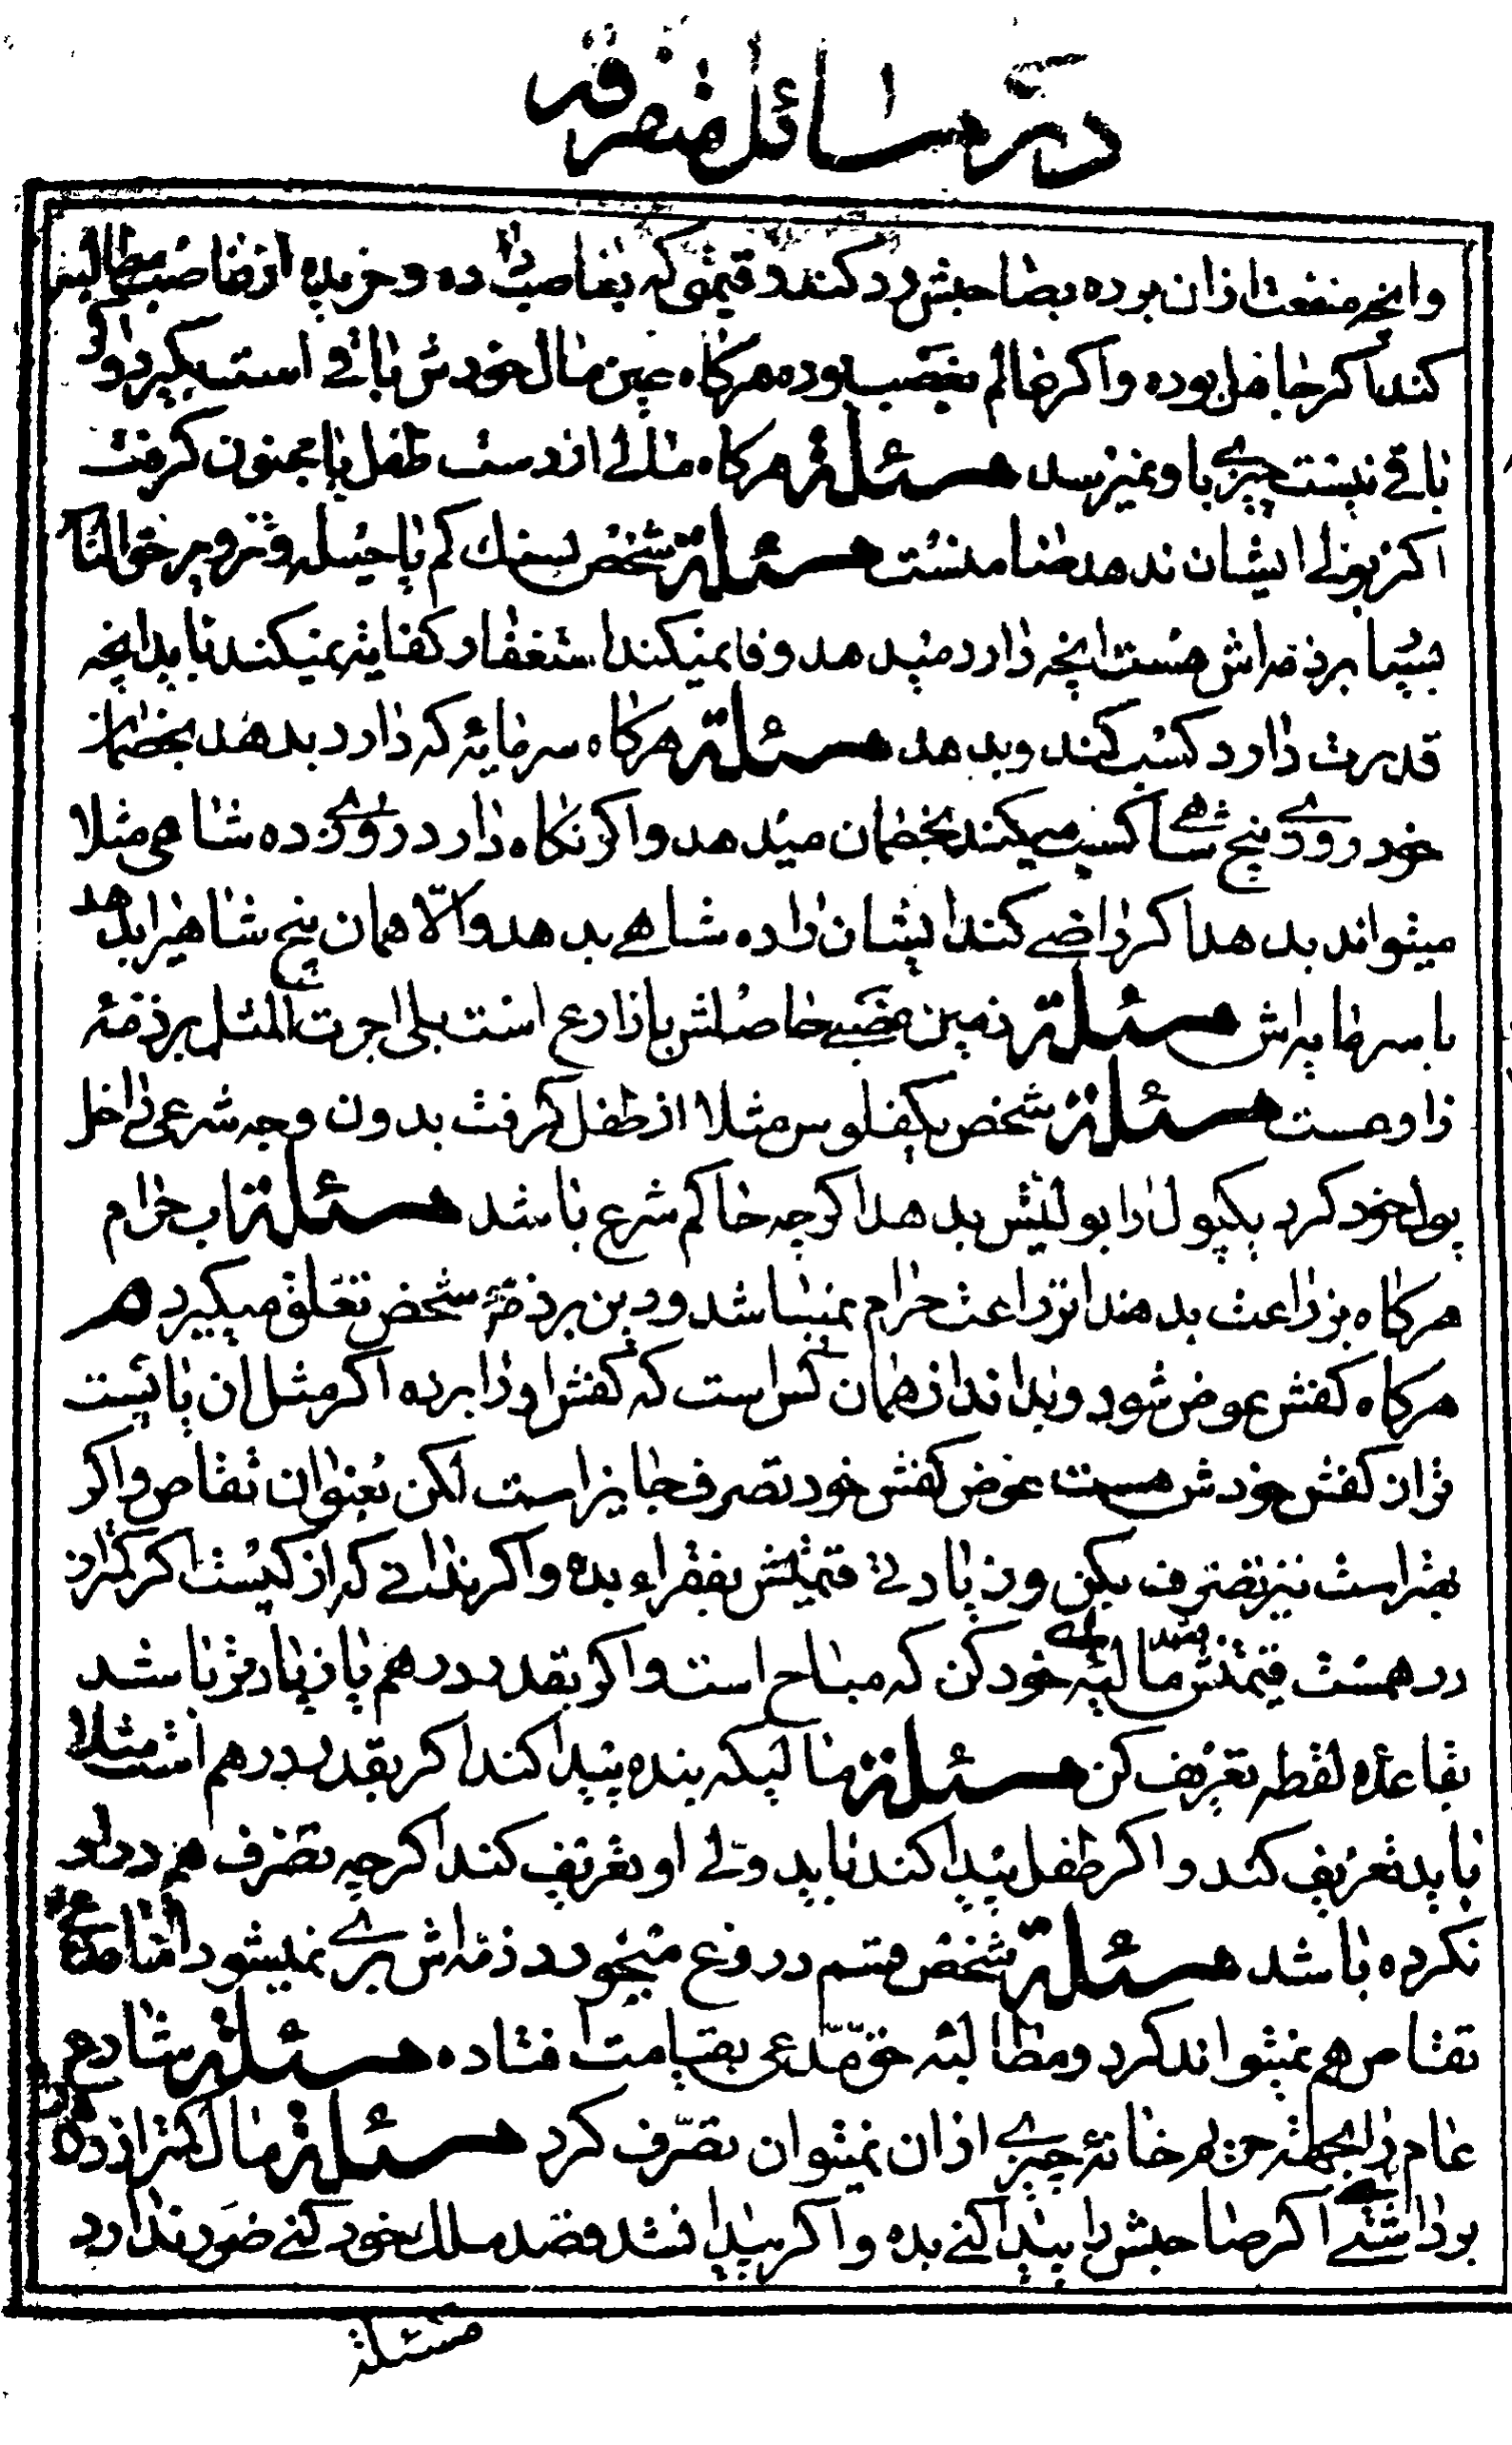 در مسائل متفرقه
وانچه منفعت ازان برده بصاحبش رد کند و قیمتی که بغاصب داده و خریده از غاصب مطالبه
کند اکر جاهل بوده واکر عالم بغصب بوده هرکاه عین مال خودش باقی است بکیرد واکر
باقی نیست چیزی باو نمیرسد مسئلة هرکاه مالی از دست طفل یا مجنون کرفت
اکر بولی ایشان ندهد ضامنست مسئلة شخص بسنك کم یا حیله و تزویر حق الناس
بسیار بر ذمه اش هست انچه دارد میدهد وفا نمیکند استغفار کفایة نمیکند باید انچه
قدرت دارد کسب کند وبدهد مسئلة هرکاه سرمایه که دارد بدهد بخصمان
خود روزی پنج شاهی کسب میکند بخصمان میدهد واکر نکاه دارد روزی ده شاهی مثلا
میتواند بدهد اکر راضی کند ایشانرا ده شاهی بدهد والّا همان پنج شاهیرا بدهد
با سرمایه اش مسئلة زمین غصبی حاصلش با زارع است بلی اجرت المثل بر ذمّه
زارع هست مسئلة شخص یکفلوس مثلا از طفل کرفت بدون وجه شرعی داخل
پول خود کرد یکپول را بولیش بدهد اکرچه حاکم شرع باشد مسئلة اب حرام
هرکاه بزراعت بدهند ان زراعت حرام نمیباشد ودین بر ذمّهٔ شخص تعلق میکیرد م
هرکاه کفش عوض شود وبداند از همان کس است که کفش اورا برده اکر مثل ان یا پست
تر از کفش خودش هست عوض کفش خود تصرف جایز است لکن بعنوان تقاص واکر
بهتر است نیز تصرف بکن وزیادتی قیمتش بفقراء بده واکر ندانی که از کیست اکر کمتر از
درهمست قیمتش مالیه خود کن که مباح است واکر بقدر درهم یا زیادتر باشد
بقاعدهٔ لقطه تعریف کن مسئلة مالیکه بنده پیدا کند اکر بقدر درهم است مثلا
باید تعریف کند واکر طفل پیدا کند باید ولی او تعریف کند اکرچه تصرف هم در او
نکرده باشد مسئلة شخص قسم دروغ میخورد ذمه اش بری نمیشود امّا
تقاص هم نمیتواند کرد ومطالبه حق مدّعی بقیامت افتاده مسئلة شارع
عام را بجهة حریم خانه چیزی ازان نمیتوان تصرّف کرد مسئلة مال کمتر از درهم
برداشتی اکر صاحبش را پیدا کنی بده واکر پیدا نشد قصد ملك خود کنی ضرر ندارد
مسئلة